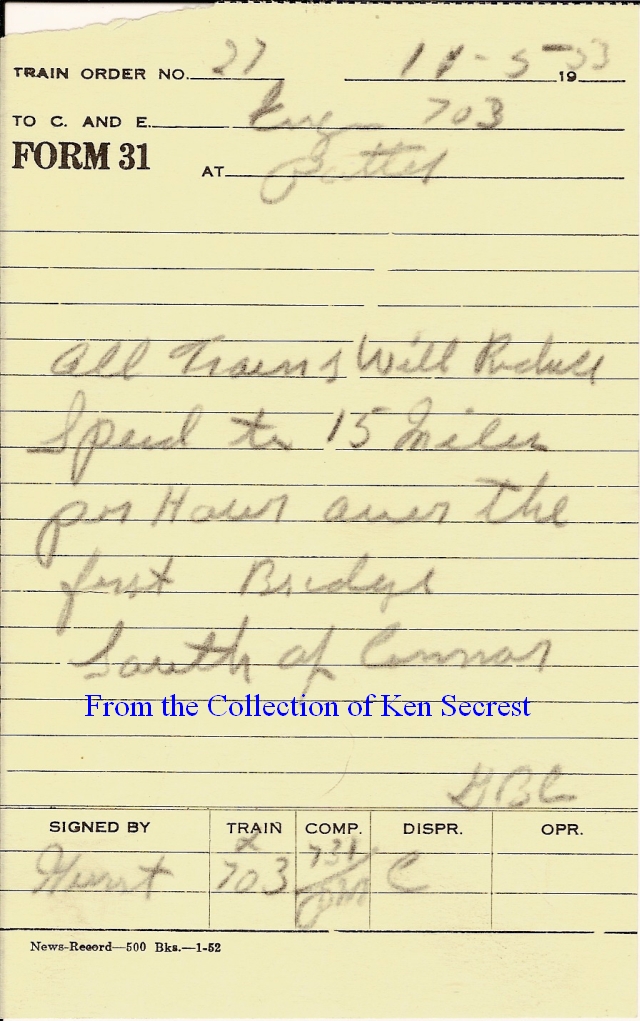 TRAIN ORDER NO. 27 11-5-1953
TO C. AND E. Eng 703
FORM 31
AT
All Trains Will Reduce
Speed to 15 Miles
per Hour over the
first Bridge
South of Connor
From the Collection of Ken Secrest
GBC
SIGNED BY TRAIN COMP. DISPR. OPR.
x 731
703 PM C
News-Record—500 Bks.—1-52